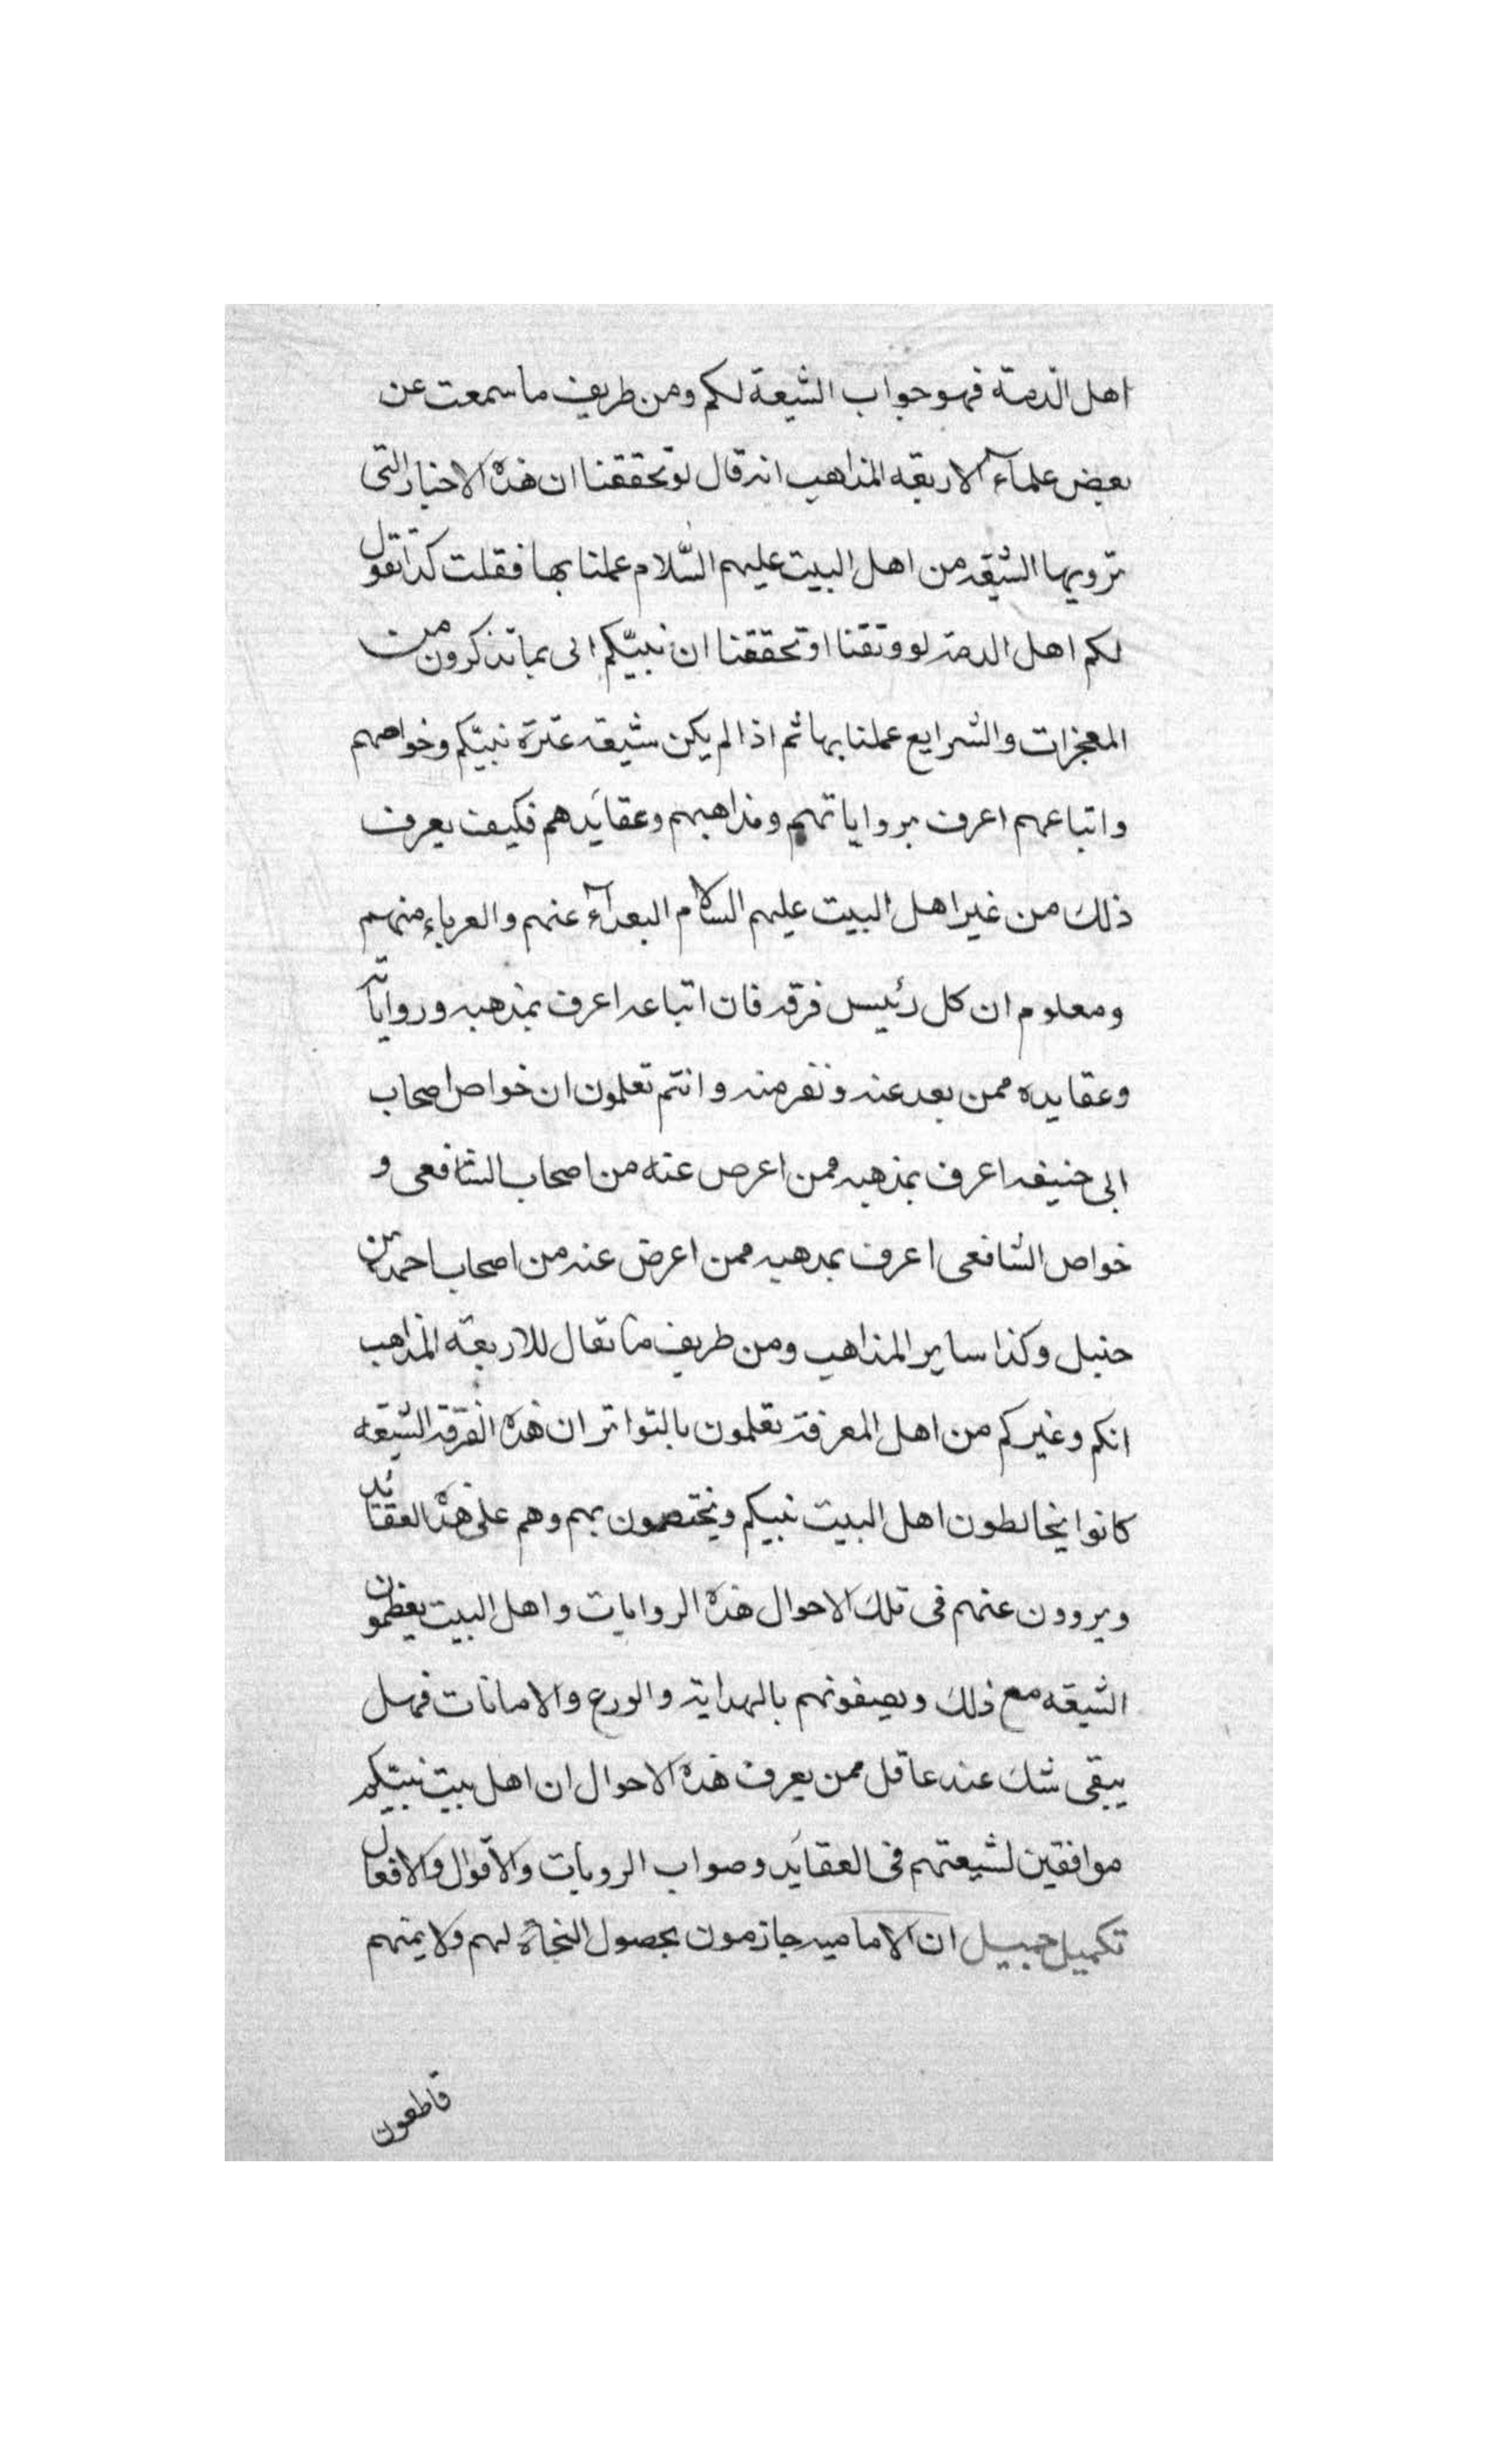 اهل الذمة فهو جواب الشيعة لكم ومن طريف ما سمعت عن
بعض علمآء الاربعه المذاهب انه قال لو تحققنا ان هذه الاخبار التى
ترويها الشيعه من اهل البيت عليهم السّلام عملنا بها فقلت كذا تقول
لكم اهل الذمة لو وثقنا او تحققنا ان نبيّكم اتى بما تذكرون من
المعجزات والشرايع عملنا بها ثم اذا لم يكن شيعه عترة نبيّكم وخواصهم
واتباعهم اعرف برواياتهم ومذاهبهم وعقائدهم فكيف يعرف
ذلك من غير اهل البيت عليهم السلام البعدآء عنهم والغرباء منهم
ومعلوم ان كل رئيس فرقه فان اتباعه اعرف بمذهبه ورواياته
وعقايده ممن بعد عنه ونفر منه وانتم تعلمون ان خواص اصحاب
ابى حنيفه اعرف بمذهبه ممن اعرض عنه من اصحاب الشافعى و
خواص الشافعى اعرف بمذهبه ممن اعرض عنه من اصحاب احمد بن
حنبل وكذا ساير المذاهب ومن طريف ما يقال للاربعة المذاهب
انكم وغيركم من اهل المعرفة تعلمون بالتواتر ان هذه الفرقة الشيعه
كانوا يخالطون اهل البيت نبيكم ويختصمون بهم وهم على هذه العقائد
ويروون عنهم فى تلك الاحوال هذه الروايات واهل البيت يعظمون
الشيعه مع ذلك ويصفونهم بالهداية والورع والامانات فهل
يبقى شك عند عاقل ممن يعرف هذه الاحوال ان اهل بيت نبيّكم
موافقين لشيعتهم فى العقائد وصواب الرويات والاقوال والافعال
تكميل جميل ان الاماميه جازمون بحصول النجاة لهم ولايمتهم
قاطعون